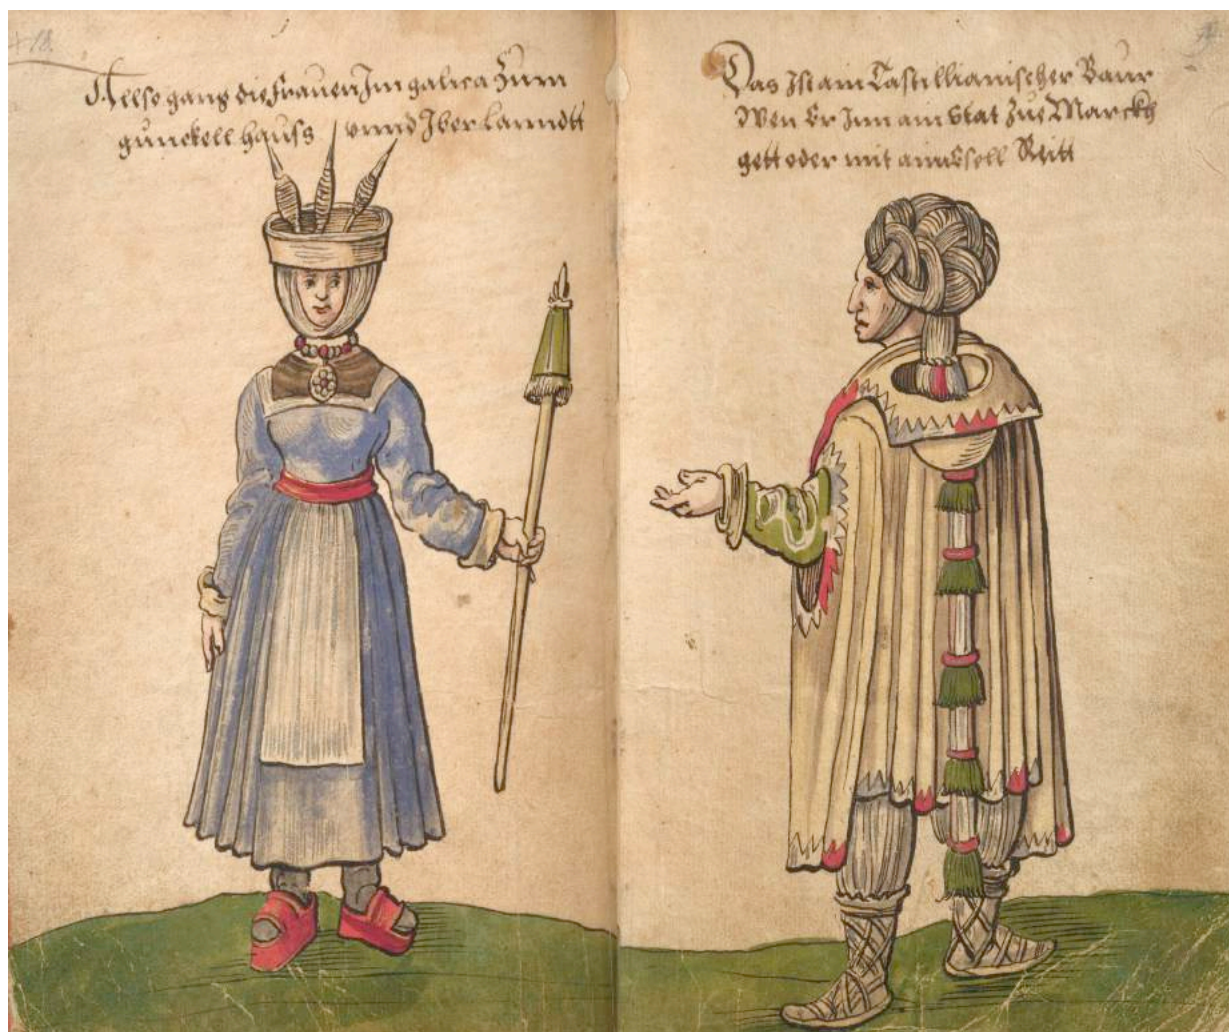 18.
Allso gang die frauen Jm galicia Zum
gunckell hauss vnnd Jber lanndtt
Das Jst ain Castillianischer Baur
Wen Er Jnn ain Stat Zue Marckh
gett oder mit aim Esell Reitt